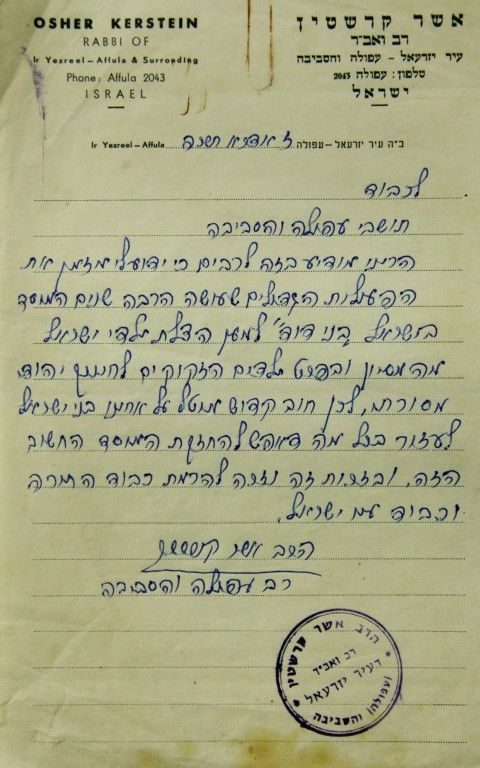 OSHER KERSTEIN
RABBI OF
Ir Yezreel – Affula & Surronding
Phone: Affula 2043
ISRAEL
אשר קרשטין
רב ואב״ד
עיר יזרעאל – עפולה והסביבה
טלפון: עפולה 2043
ישראל
Ir Yezreel – Affula
ב״ה עיר יזרעאל – עפולה
לכבוד
תושבי עפולה והסביבה
הריני מודיע בזה לרבים כי ידוע לי מזמן את
הפעולות הגדולים שעושה הרבה שנים המוסד
בישראל "בני דוד" למען הצלת ילדי ישראל
מהמסיון ובפרט ילדים הזקוקים לחינוך יהודי
מסורתי, לכן חוב קדוש מוטל על אחינו בני ישראל
לעזור בכל מה דאפשר להחזקת המוסד החשוב
הזה, ובזכות זה נזכה להרמת כבוד התורה
וכבוד עם ישראל.
הרב אשר קרשטין
רב עפולה והסביבה
הרב אשר קרשטין
רב ואב״ד
דעיר יזרעאל
(עפולה) והסביבה